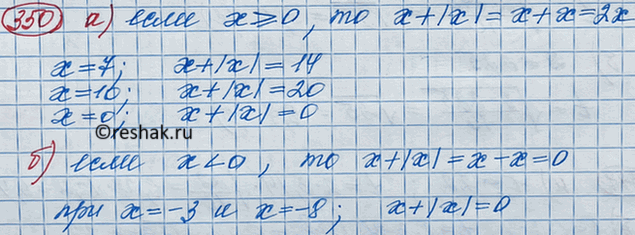 350 а) если x⩾0, то x+|x|=x+x=2x
x=7; x+|x|=14
x=10; x+|x|=20
x=0; x+|x|=0
©reshak.ru
б) если x<0, то x+|x|=x-x=0
при x=-3 и x=-8; x+|x|=0